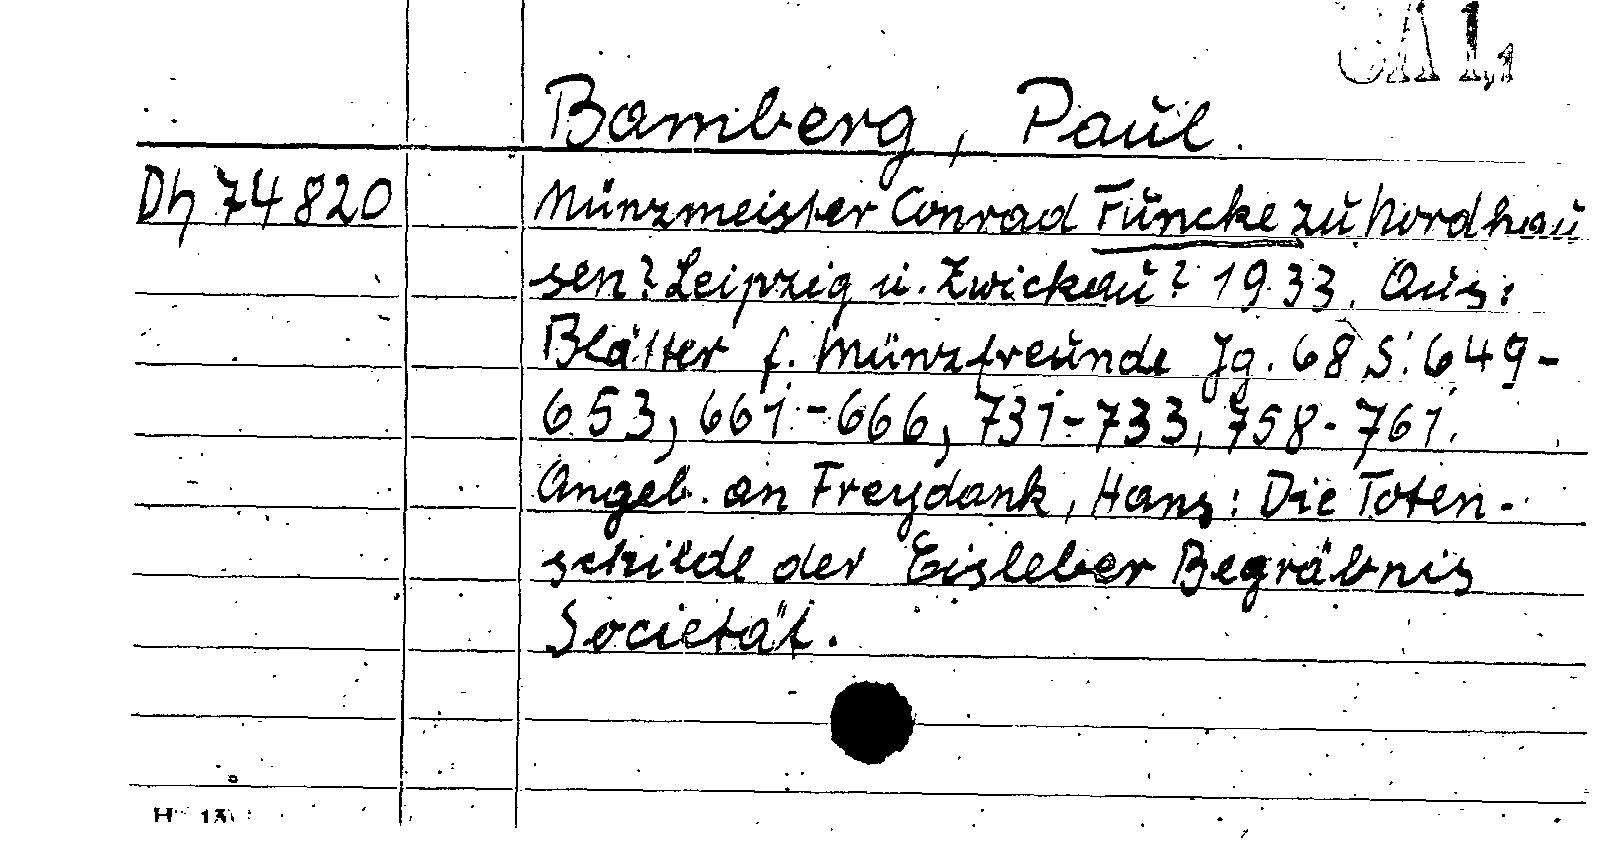 Bamberg, Paul.
Dh 74820 Münzmeister Conrad Funcke zu Nordhau
sen? Leipzig u. Zwickau? 1933. Aus:
Blätter f. Münzfreunde Jg. 68 S. 649-
653, 661-666, 731-733, 758-761.
Angeb. an Freydank, Hans: Die Toten-
schilde der Eisleber Begräbnis
Societät.